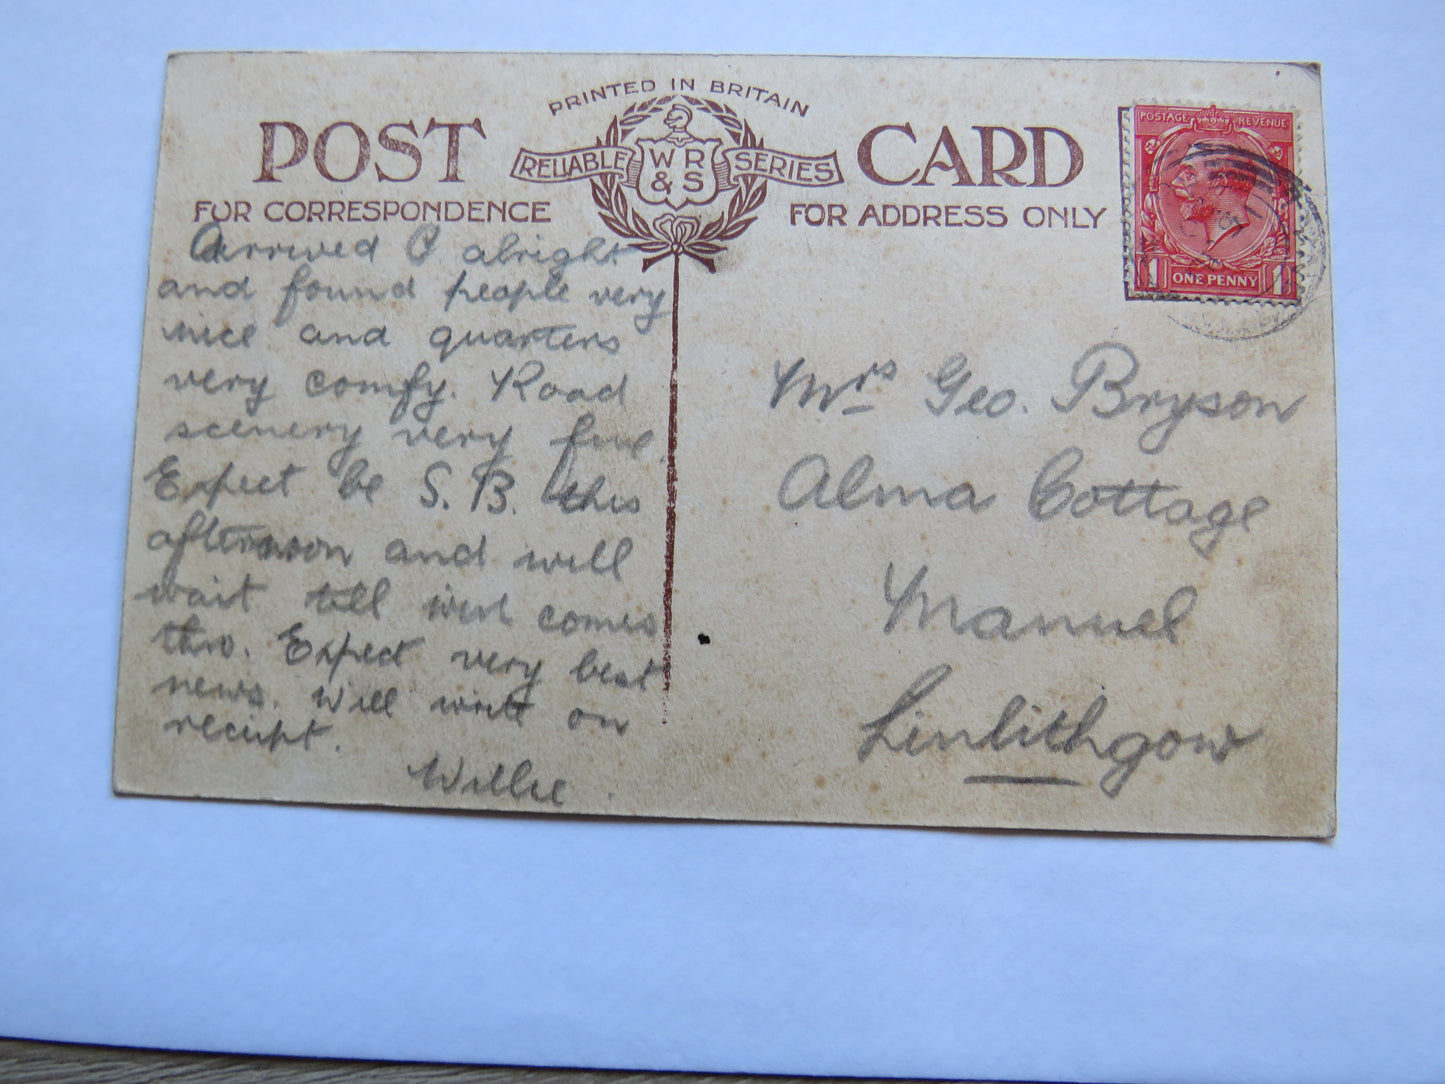 PRINTED IN BRITAIN
POST CARD
RELIABLE WR &S SERIES
FOR CORRESPONDENCE
FOR ADDRESS ONLY
POSTAGE REVENUE
1 ONE PENNY 1
Arrived C alright
and found people very
nice and quarters
very comfy. Road
scenery very fine
Expect be S. B. this
afternoon and will
wait till comes
thro. Expect very best
news. Will write on
receipt.
Willie
Mrs Geo. Bryson
Alma Cottage
Manuel
Linlithgow